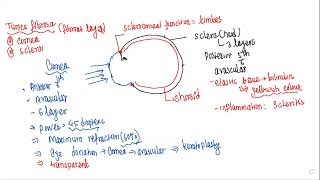 Tunica fibrosa (fibrous layer)
① cornea
② sclera
sclerocorneal junction = limbus
sclera (hard)
3 layers
posterior 5/6th
avascular
- elastic tissue + bilirubin
⇒ yellowish colour
- inflammation: scleritis
choroid
Cornea
- Anterior 1/6th
- Avascular
- 6 layer
→ Power = 45 diopters
⇒ Maximum refraction (60%)
⇒ Eye donation → Cornea ⇒ avascular → keratoplasty
⇒ transparent